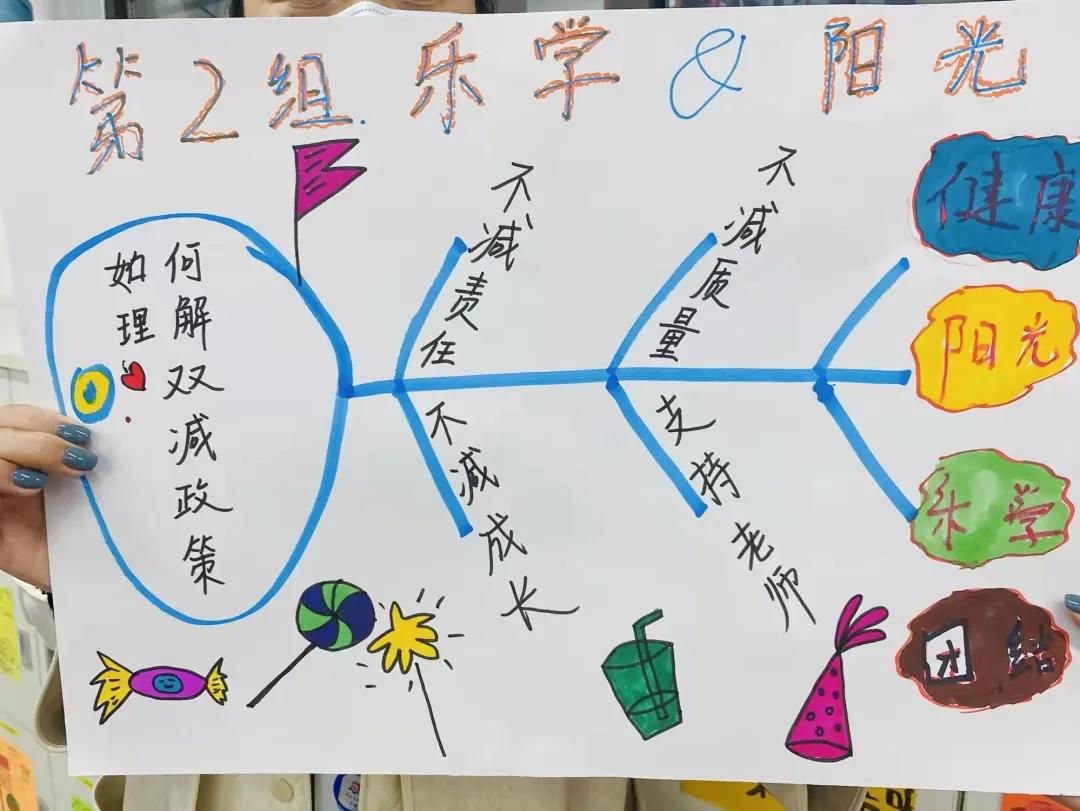 第2组 乐学 & 阳光
如何理解双减政策
不减责任
不减成长
不减质量
支持老师
健康
阳光
乐学
团结